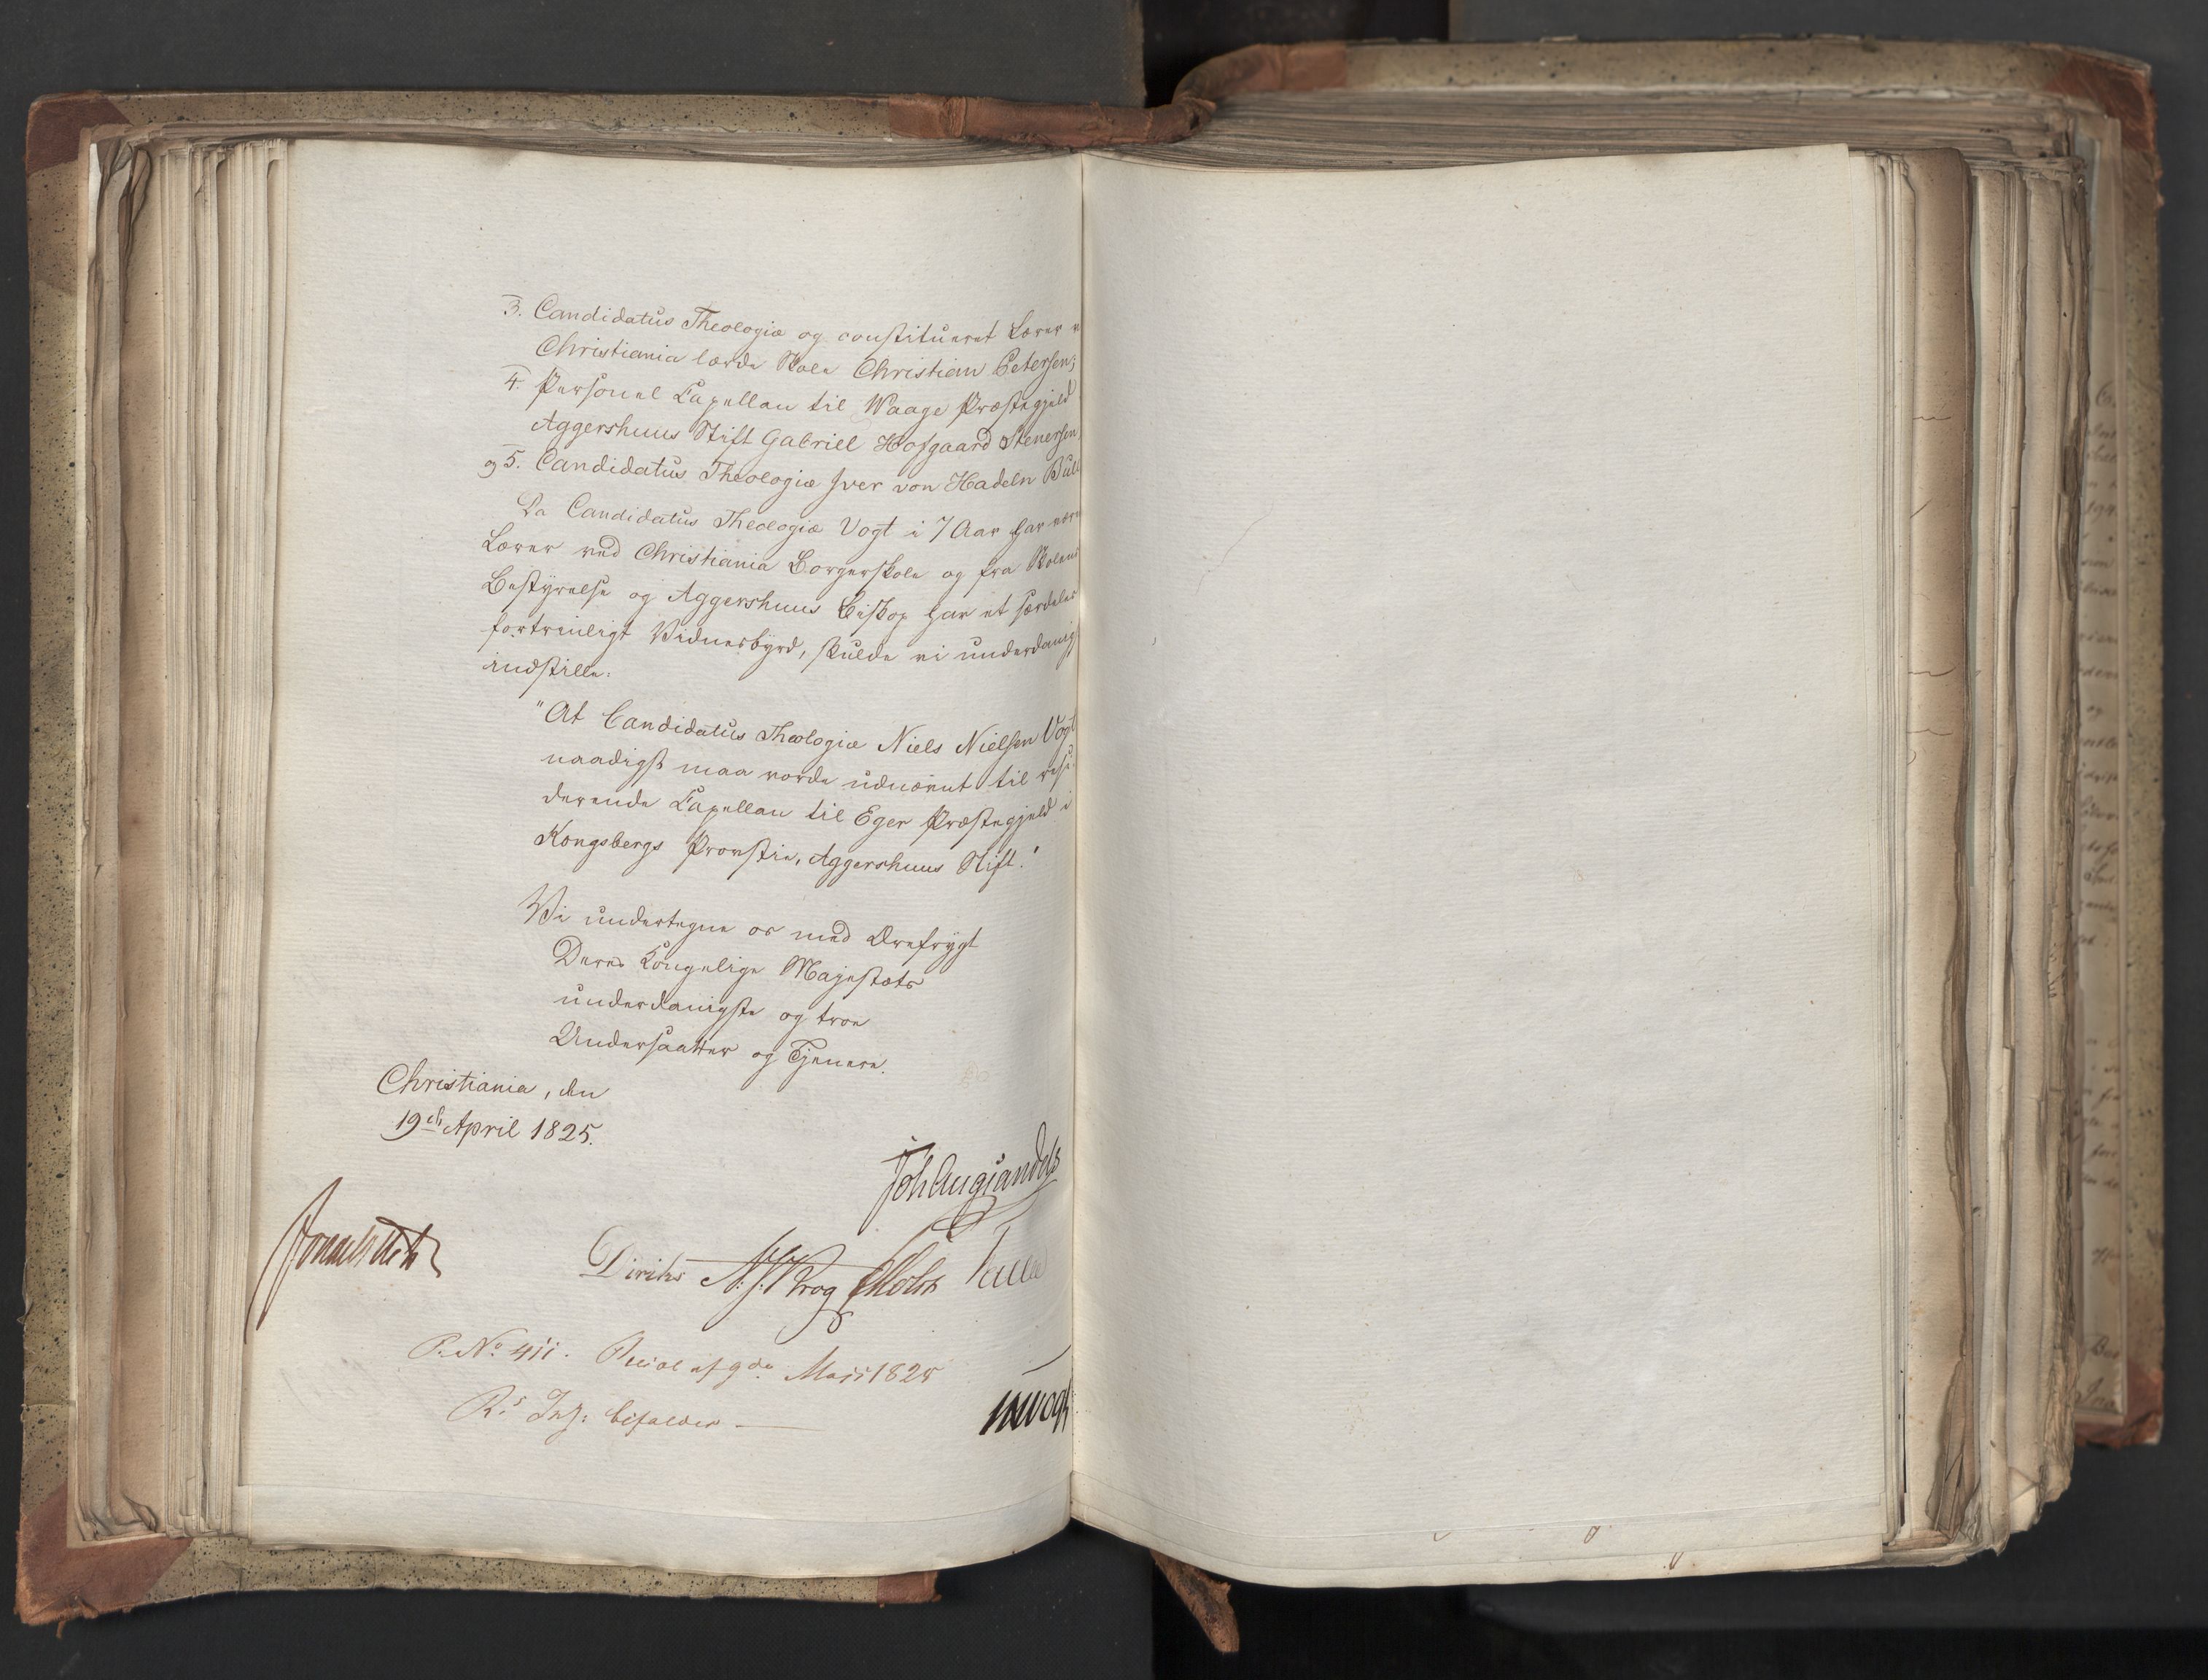 3. Candidatus Theologiæ og constitueret Lærer v
Christiania lærde Skole Christian Petersen;
4. Personel Capellan til Waage Præstegjeld
Aggershuus Stift Gabriel Hofgaard Stenersen,
og 5. Candidatus Theologiæ Iver von Hadeln Bull
Da Candidatus Theologiæ Vogt i 7 Aar har være
Lærer ved Christiania Borgerskole og fra Skolens
Bestyrelse og Aggershuus Biskop har et særdeles
fortrinligt Vidnesbyrd, skulde vi underdanigst
indstille:
"At Candidatus Theologiæ Niels Nielsen Vogt
naadigst maa vorde udnævnt til resi-
derende Capellan til Eger Præstegjeld i
Kongsbergs Provstie, Aggershuus Stift."
Vi undertegne os med Ærefrygt
Deres Kongelige Majestæts
underdanigste og troe
Undersaatter og Tjenere.
Christiania, den
19de April 1825.
Joh Aug Sandels
Jonas Collett
Diriks N. J. Krog Motzfeldt
P. No 411. Resol af 9de Maii 1825
Rs Inst: bifaldes